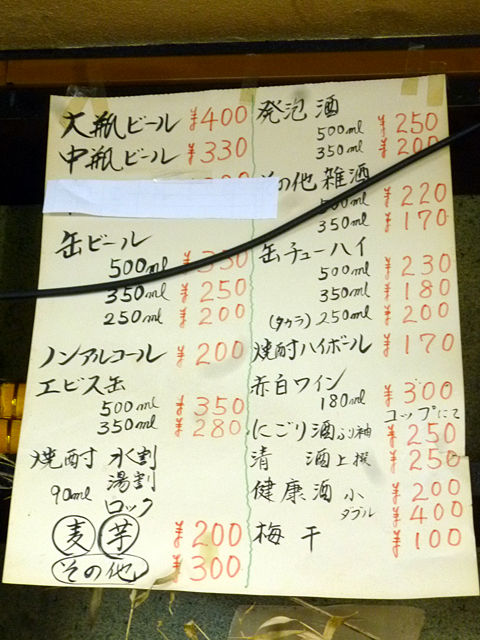 大瓶ビール ¥400
中瓶ビール ¥330
缶ビール
500ml ¥330
350ml ¥250
250ml ¥200
ノンアルコール ¥200
エビス缶
500ml ¥350
350ml ¥280
焼酎 水割
90ml 湯割
ロック
麦 芋 ¥200
その他 ¥300
発泡酒
500ml ¥250
350ml ¥200
その他雑酒
500ml ¥220
350ml ¥170
缶チューハイ
500ml ¥230
350ml ¥180
(タカラ) 250ml ¥200
焼酎ハイボール ¥170
赤白ワイン
180ml ¥300
コップにて
にごり酒ふり袖 ¥250
清酒上撰 ¥250
健康酒 小 ¥200
ダブル ¥400
梅干 ¥100